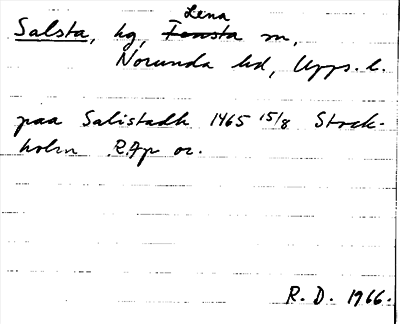 Salsta, hg, Lena m,
Norunda hd, Upps. l.
paa Salistadh 1465 15/8 Stock-
holm RAp or.
R. D. 1966.